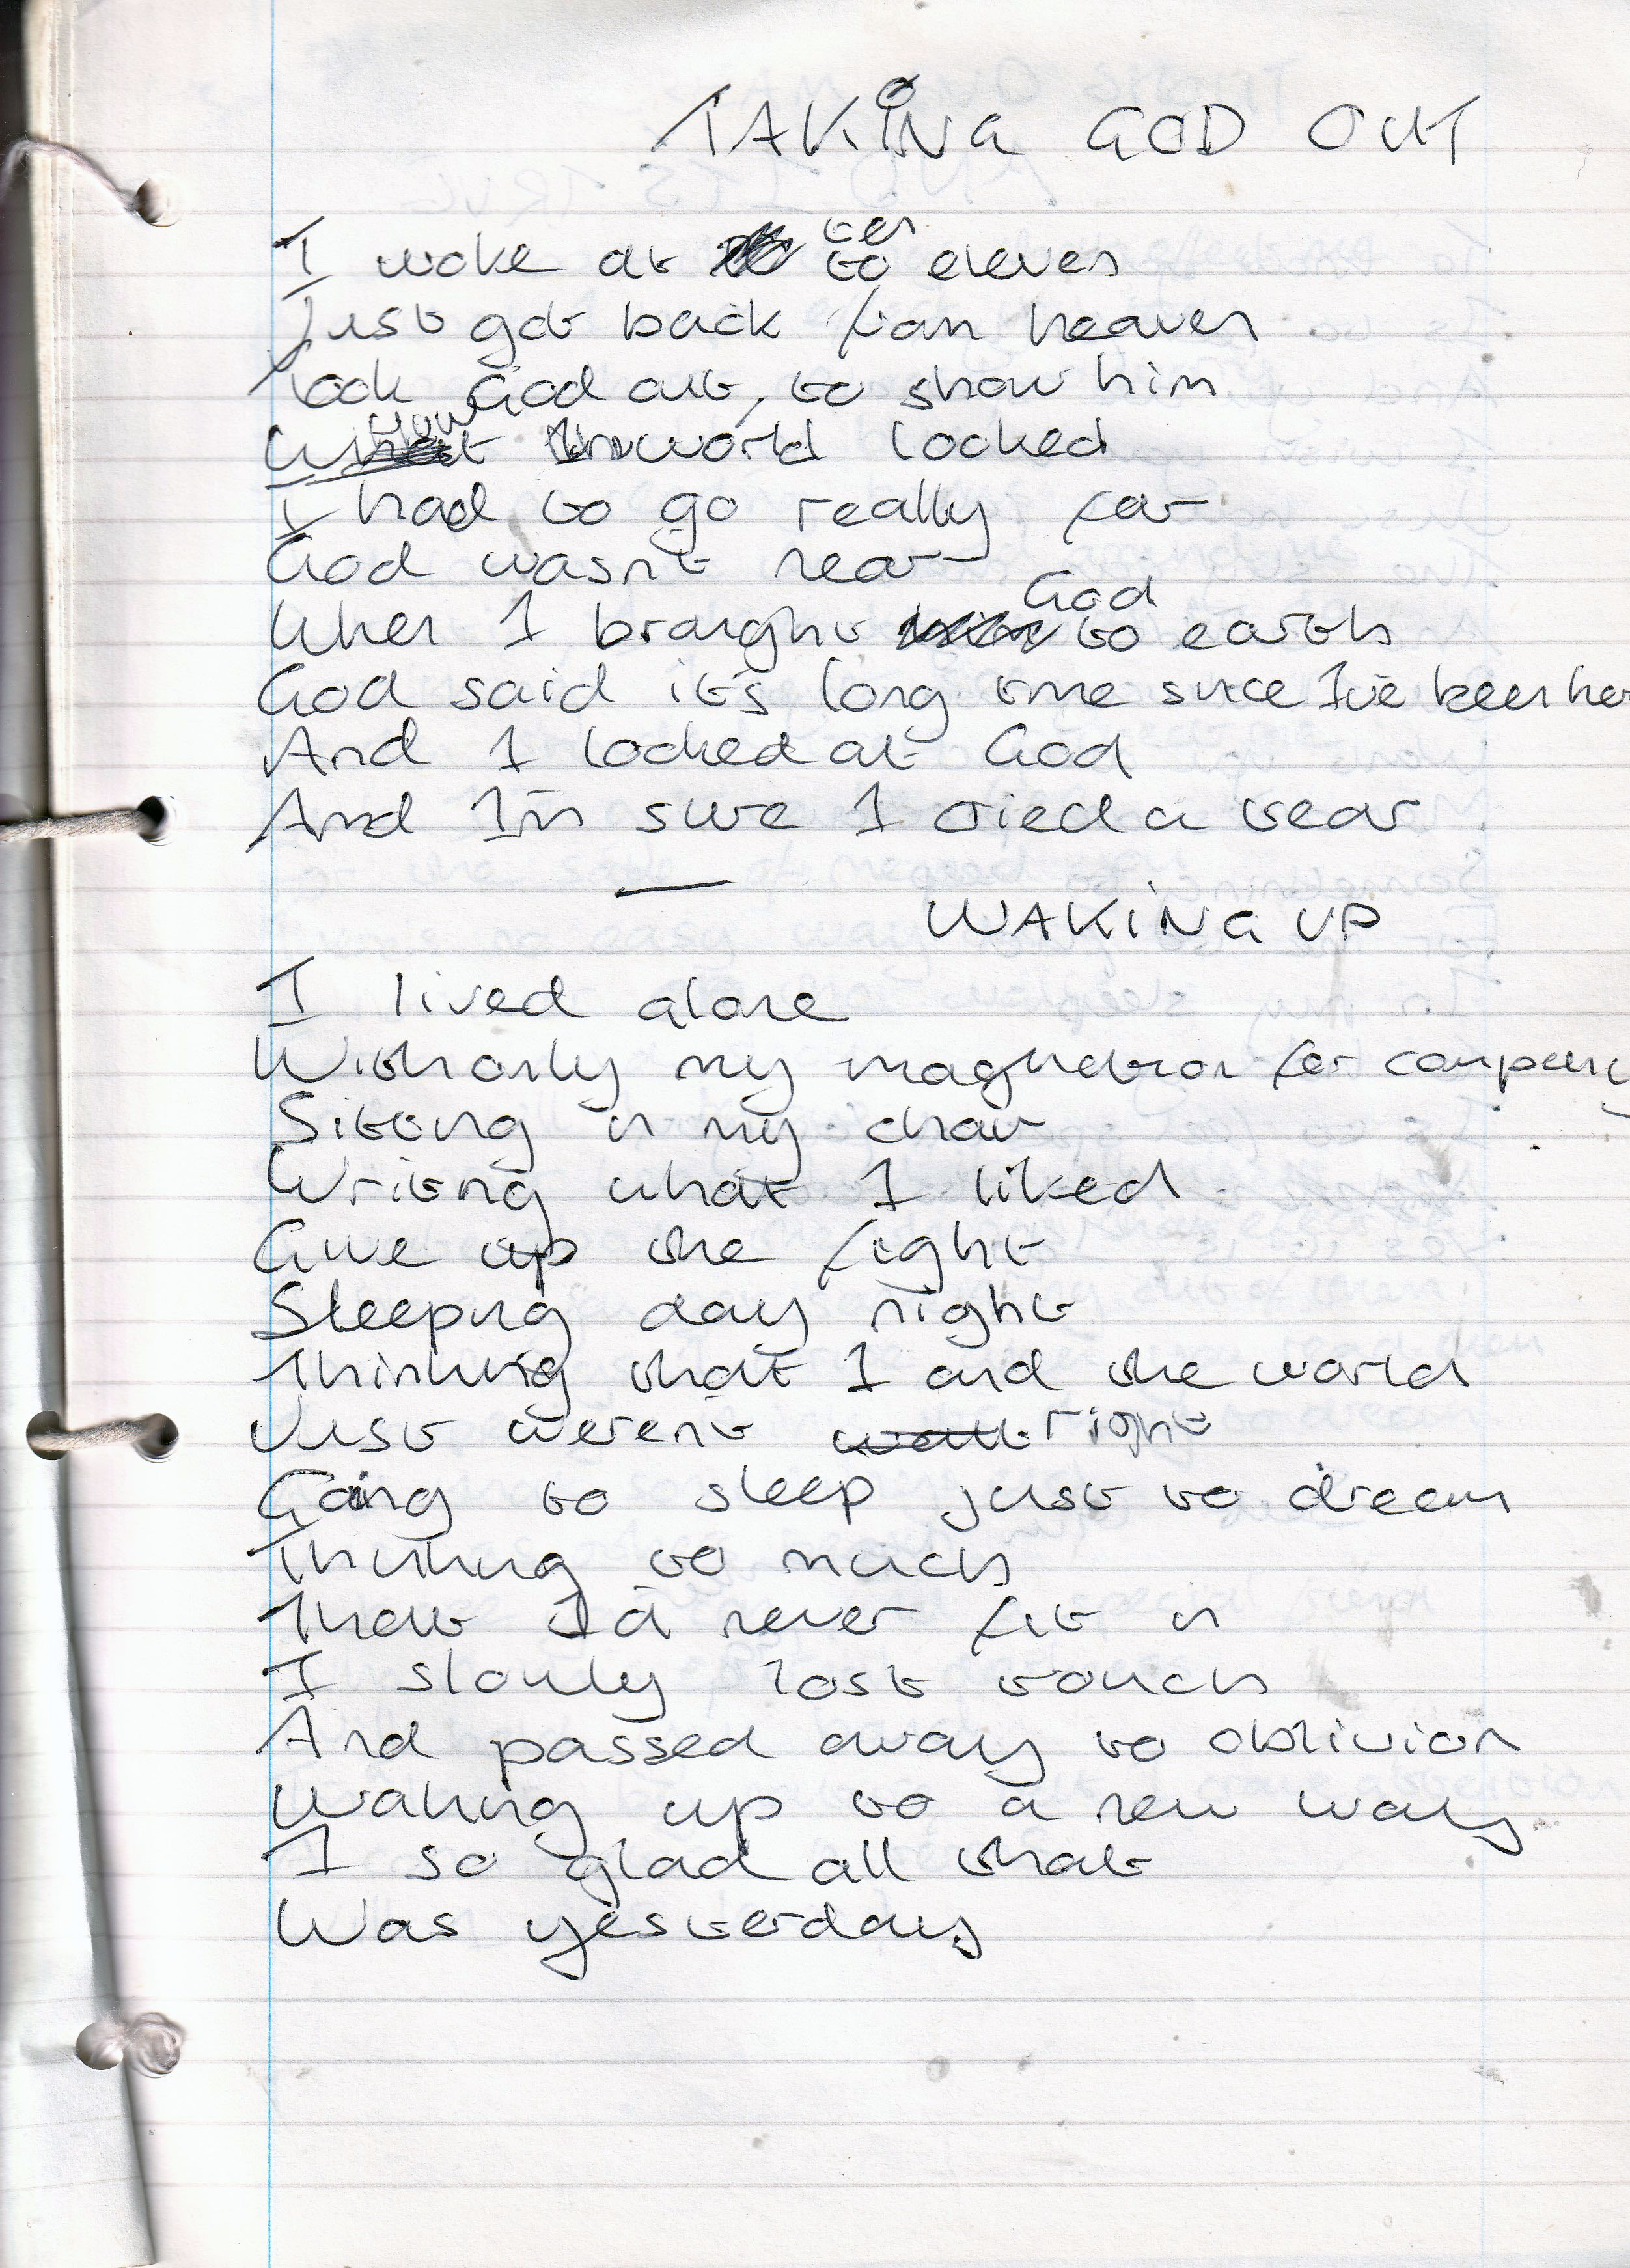 TAKING GOD OUT
I woke at ten to eleven
Just got back from heaven
Took God out, to show him
How the world looked
I had to go really far
God wasn't near
When I brought God to earth
God said it's long time since I've been here
And I looked at God
And I'm sure I cried a tear
WAKING UP
I lived alone
With only my magnetron for company
Sitting in my chair
Writing what I liked
Give up the fight
Sleeping day night
Thinking that I and the world
Just weren't right
Going to sleep just to dream
Thinking to much
That I'd never fit in
I slowly lost touch
And passed away to oblivion
Waking up to a new way
I so glad all that
Was yesterday